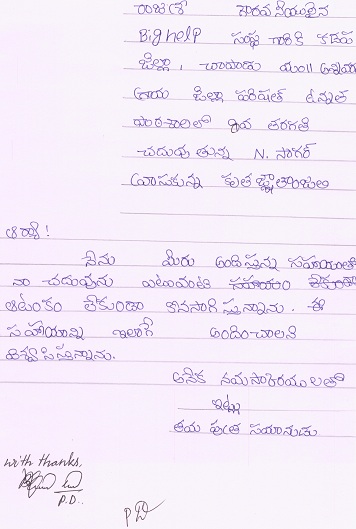 గౌరవనీయులైన
Bighelp సంస్థ గారికి కడప
జిల్లా, చాపాడు మం॥
జిల్లా పరిషత్ ఉన్నత
పాఠశాలలో 9వ తరగతి
చదువుతున్న N. సాగర్
వ్రాసుకున్న కృతజ్ఞతాంజలి
ఆర్యా!
నేను మీరు అందిస్తున్న సహాయంతో
నా చదువును ఎటువంటి
ఆటంకం లేకుండా కొనసాగిస్తున్నాను. ఈ
సహాయాన్ని ఇలాగే అందించాలని
ఆశిస్తున్నాను.
అనేక నమస్కారములతో
ఇట్లు
with thanks,
P.D..
PD